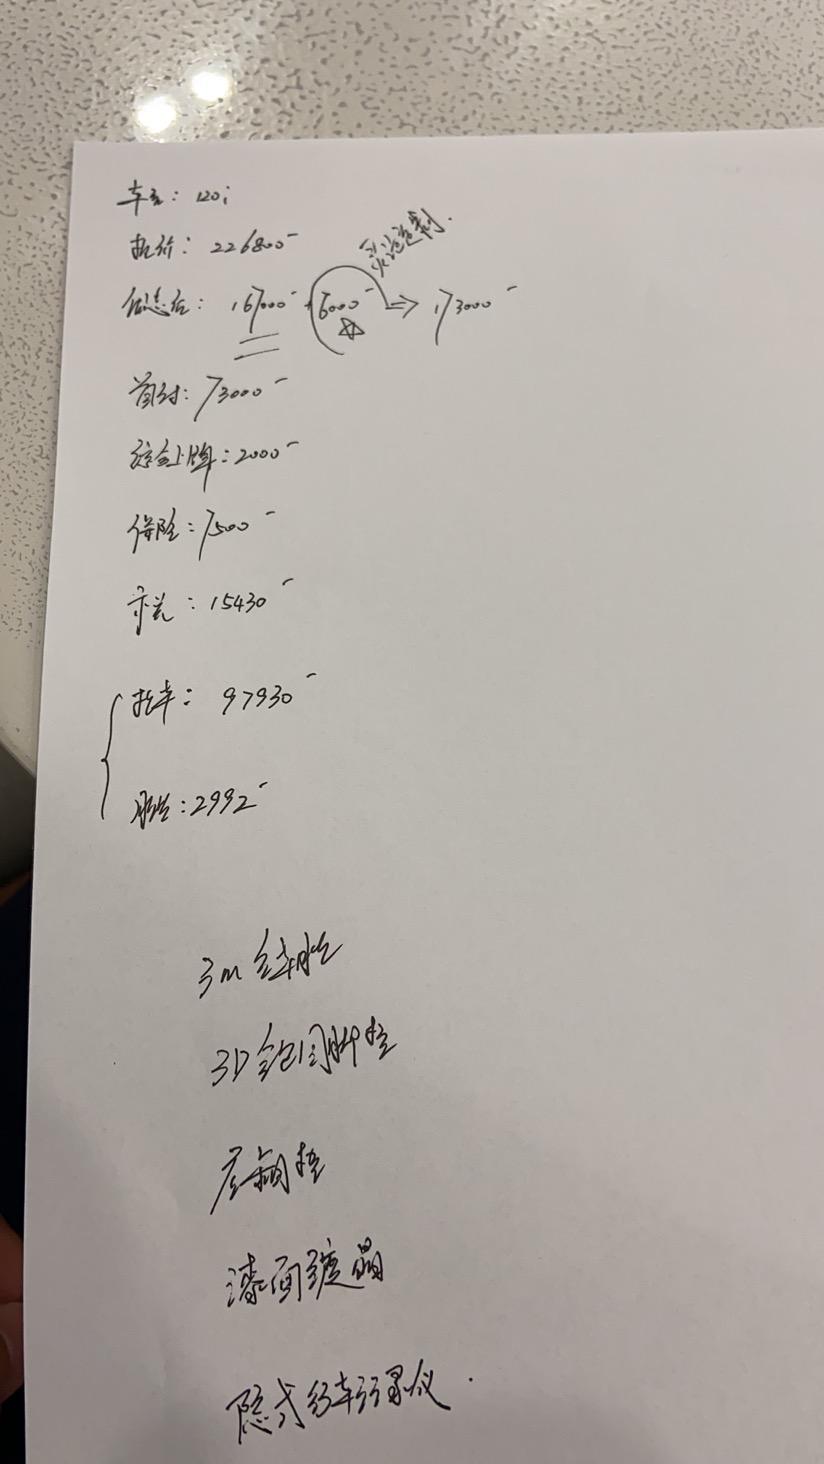 车型: 120i
指导价: 226800-
优惠后: 167000- +6000- ⇒ 173000-
首付: 73000-
综合上牌: 2000-
保险: 7500-
购置税: 15430-
提车: 97930-
月供: 2992-
3m 全车膜
3D 全包围脚垫
后备箱垫
漆面镀晶
隐式行车记录仪.